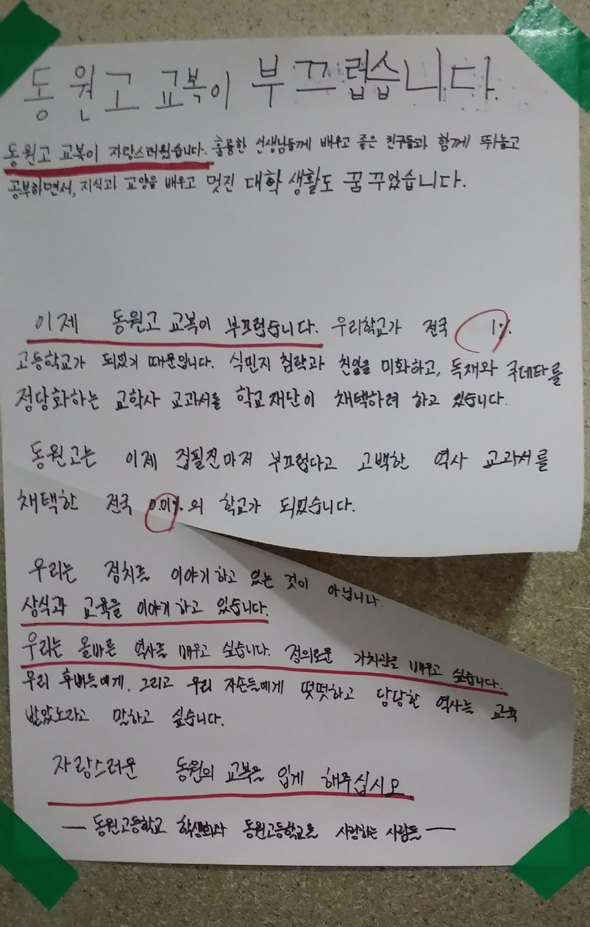 동원고 교복이 부끄럽습니다.
동원고 교복이 자랑스러웠습니다. 훌륭한 선생님들께 배우고 좋은 친구들과 함께 뛰놀고
공부하면서, 지식과 교양을 배우고 멋진 대학 생활도 꿈꾸었습니다.
이제 동원고 교복이 부끄럽습니다. 우리학교가 전국 1%
고등학교가 되었기 때문입니다. 식민지 침략과 친일을 미화하고, 독재와 쿠데타를
정당화하는 교학사 교과서를 학교재단이 채택하려 하고 있습니다.
동원고는 이제 집필진마저 부끄럽다고 고백한 역사 교과서를
채택한 전국 0.01%의 학교가 되었습니다.
우리는 정치를 이야기하고 있는 것이 아닙니다.
상식과 교육을 이야기하고 있습니다.
우리는 올바른 역사를 배우고 싶습니다. 정의로운 가치관을 배우고 싶습니다.
우리 후배들에게, 그리고 우리 자손들에게 떳떳하고 당당한 역사를 교육
받았노라고 말하고 싶습니다.
자랑스러운 동원의 교복을 입게 해주십시오
— 동원고등학교 학생회와 동원고등학교를 사랑하는 사람들 —